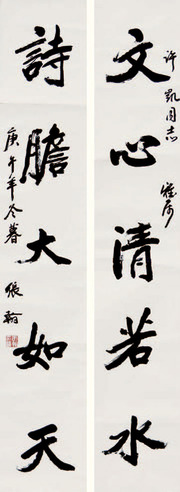 文心清若水
许凯同志 雅属
詩膽大如天
庚午年冬暮 張翰